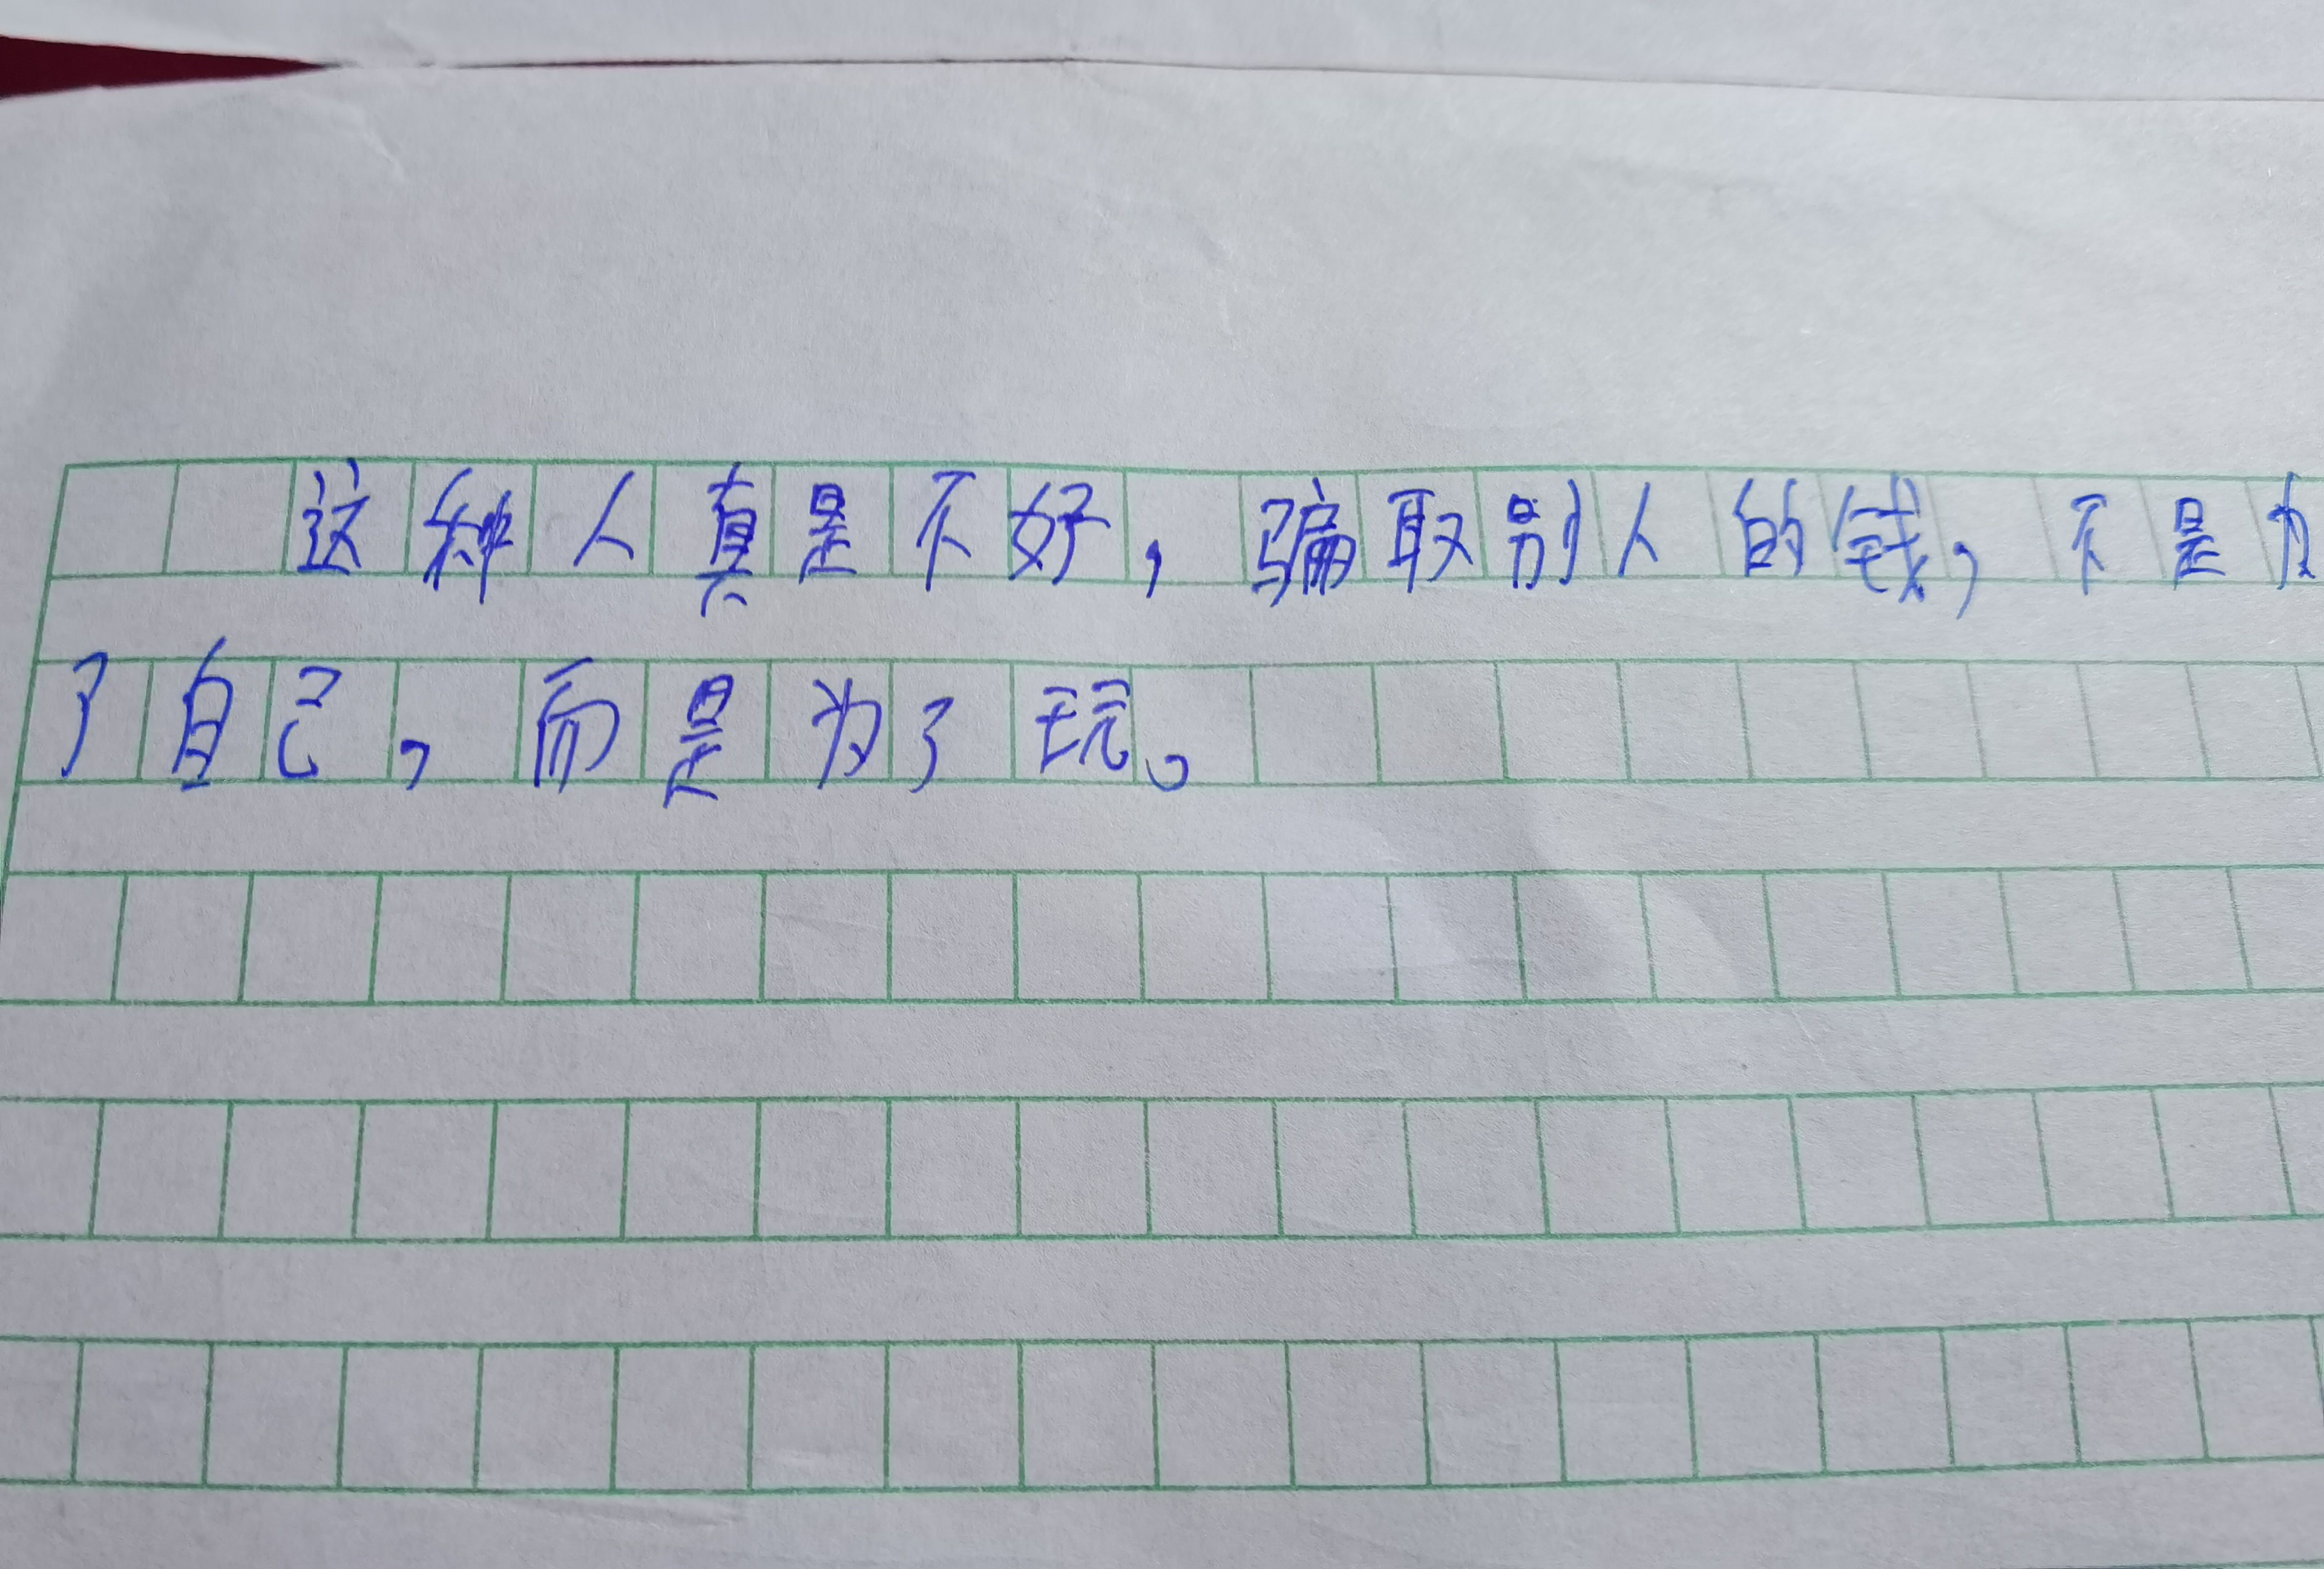 这种人真是不好，骗取别人的钱，不是为
了自己，而是为了玩。